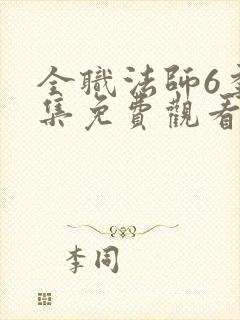 全職法師6季
集免費觀看
李同